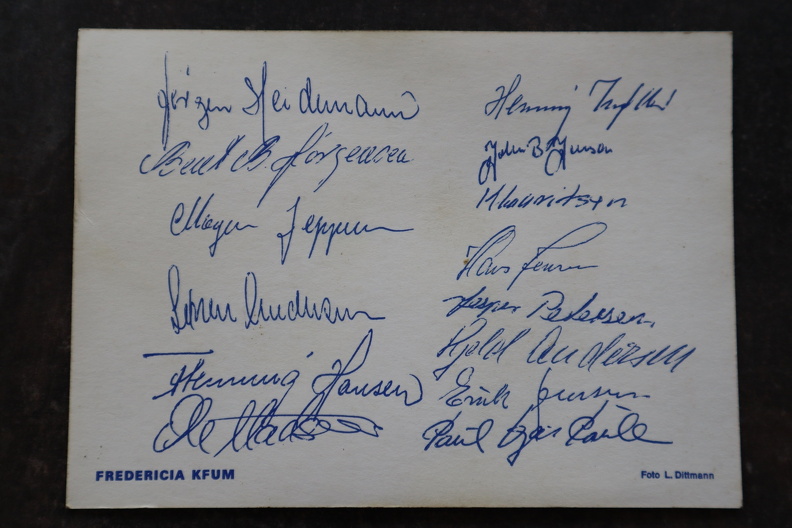 Jörgen Heidemann
Bent B. Jørgensen
Mogen Jeppesen
Søren Andersen
Henning Hansen
Ole Madsen
Henning
John B Jensen
Mauritsen
Hans Jensen
Jesper Petersen
Andersen
Erik Jensen
Paul
FREDERICIA KFUM
Foto L. Dittmann